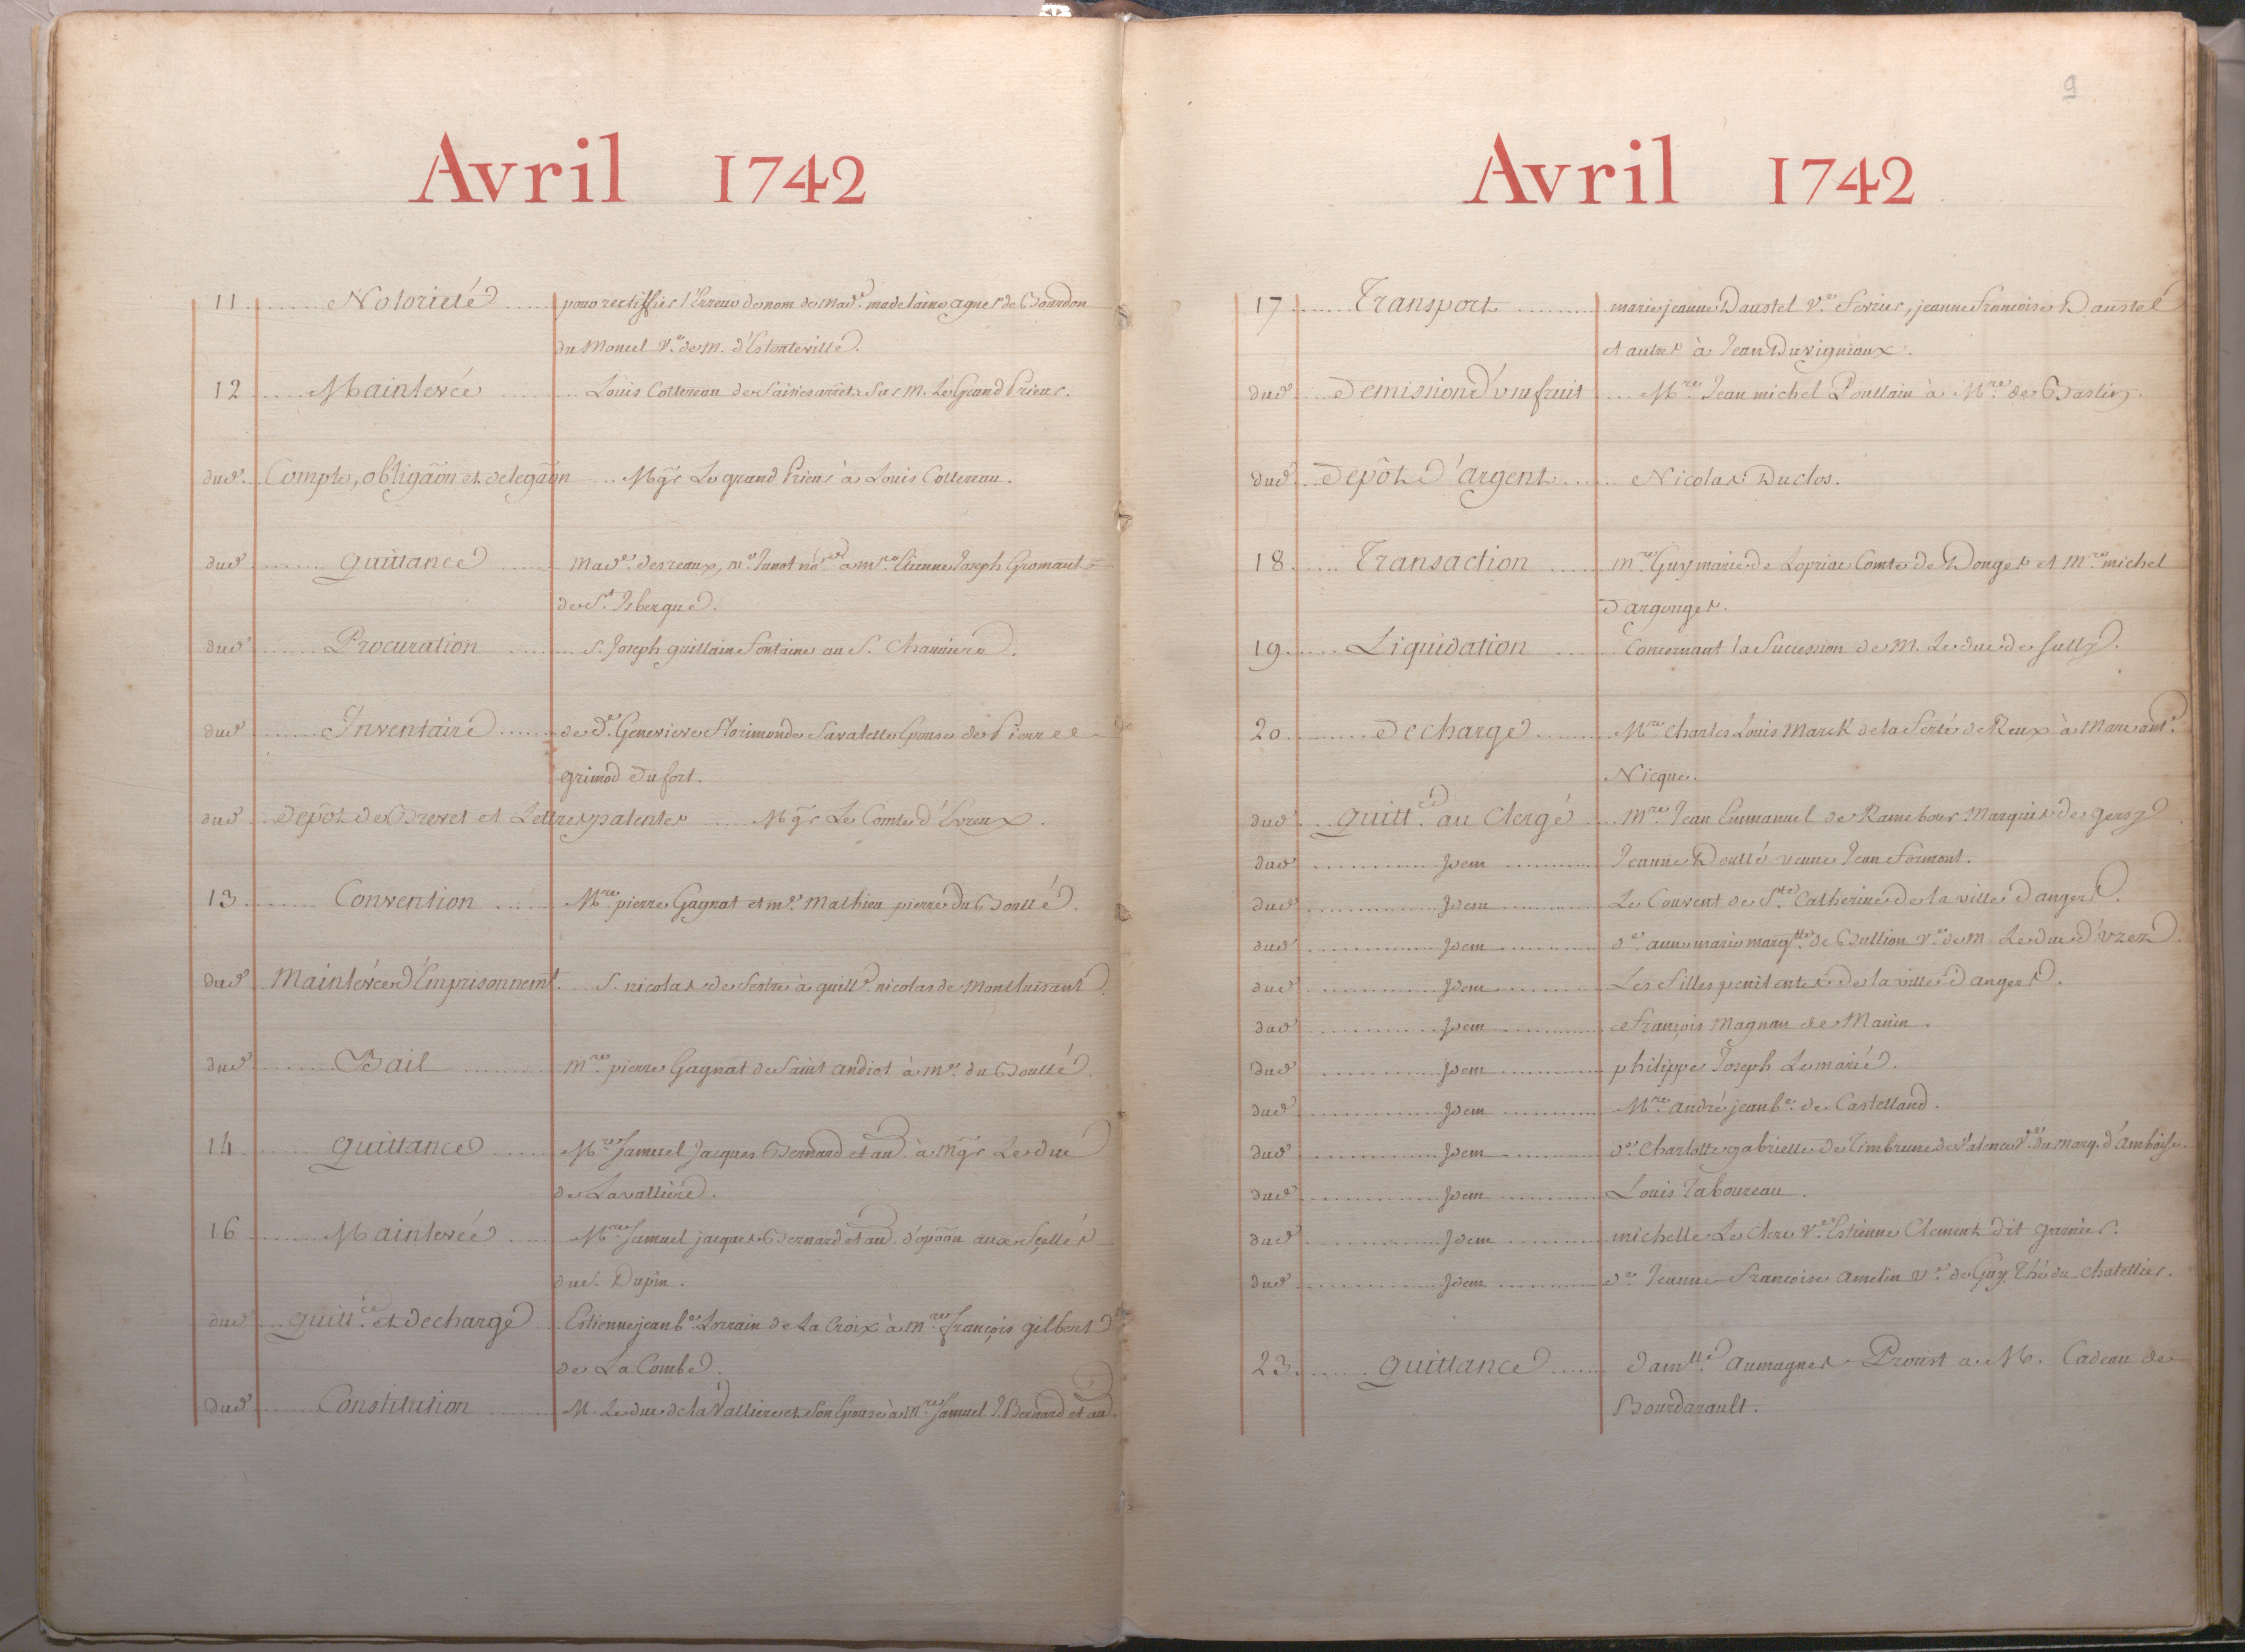 Avril 1742
11 Notorieté pour rectiffier l'Erreur de nom de Mad.e madelaine agnes de Bourdon
du Moncel V.e de M. d'Estouteville.
12 Mainlevée Louis Cottereau de saisies arrets sur M. Le Grand Prieur.
dud. Compte, obligãon et delegãon Mgr. Le grand Prieur à Louis Cottereau.
dud. quittance Mad.e desreaux, m.e Junot no.re a m.re Etienne Joseph Gromant
de S.t Isbergue.
dud. Procuration S. Joseph guillain fontaine au S. Chaumiere.
dud. Inventaire de d.e Genevieve Florimonde Savalette Epouse de Pierre
grimod Dufort.
dud. Depôt de Brevet et Lettres patentes Mgr. Le Comte d'Evreux.
13 Convention M.re pierre Gagnat et m.e Mathieu pierre du Boullé.
dud. Mainlevée d'Emprisonnem.t S. nicolas de Sestre à guill.e nicolas de Montluisant
dud. Bail m.re pierre Gagnat de Saint andiol à m.e du Boullé.
14 quittance M.re Samuel Jacques Bernard et au. à Mgr. Le duc
de Lavalliere.
16 Mainlevée M.re Samuel jacques Bernard et au. d'opõon aux Scellés
du S. Dupin.
dud. quitt.ce et decharge Estienne jean b.e Lorrain de La Croix à m.re françois gilbert
de La Combe.
dud. Constitution M. Le duc de la Valliere et son Epouse à m.re Samuel J. Bernard et au.
9
Avril 1742
17 Transport marie jeanne Daustel V.e ferrier, jeanne francoise Daustel
et autres à Jean Duvigneaux.
dud. Demission d'usufruit M.re Jean michel Poullain à M.re de Bastin.
dud. Depôt d'argent Nicolas Duclos.
18 Transaction m.re Guy marie de Lopriac Comte de Donges et M.re michel
Dargouges.
19 Liquidation Concernant la Succession de M. Le duc de Sully.
20 Decharge M.re Charles Louis Marck de la ferté de Reux à Marc ant.e
Nicque.
dud. quitt.ce au Clergé M.re Jean Emmanuel de Rame bour Marquis de gersy
dud. Idem Jeanne Doullé veuve Jean formont.
dud. Idem Le Couvent de S.te Catherine de la ville d'angers.
dud. Idem d.e anne marie marg.tte de Bullion V.e de M. Le duc d'uzez.
dud. Idem Les filles penitentes de la ville d'angers.
dud. Idem françois Magnan de Manin.
dud. Idem philippe Joseph Lemarié.
dud. Idem M.re andré jean b.e de Castelland.
dud. Idem d.e Charlotte gabrielle de Timbrune de Valence V.e du Marq. d'amboise.
dud. Idem Louis Taboureau.
dud. Idem michelle Le Clerc V.e Estienne Clement dit garnier.
dud. Idem d.e Jeanne francoise amelin V.e de Guy Thé du Chatellier.
23 quittance dam.lle aumagnes Proust a M. Cadeau de
Bourdarault.